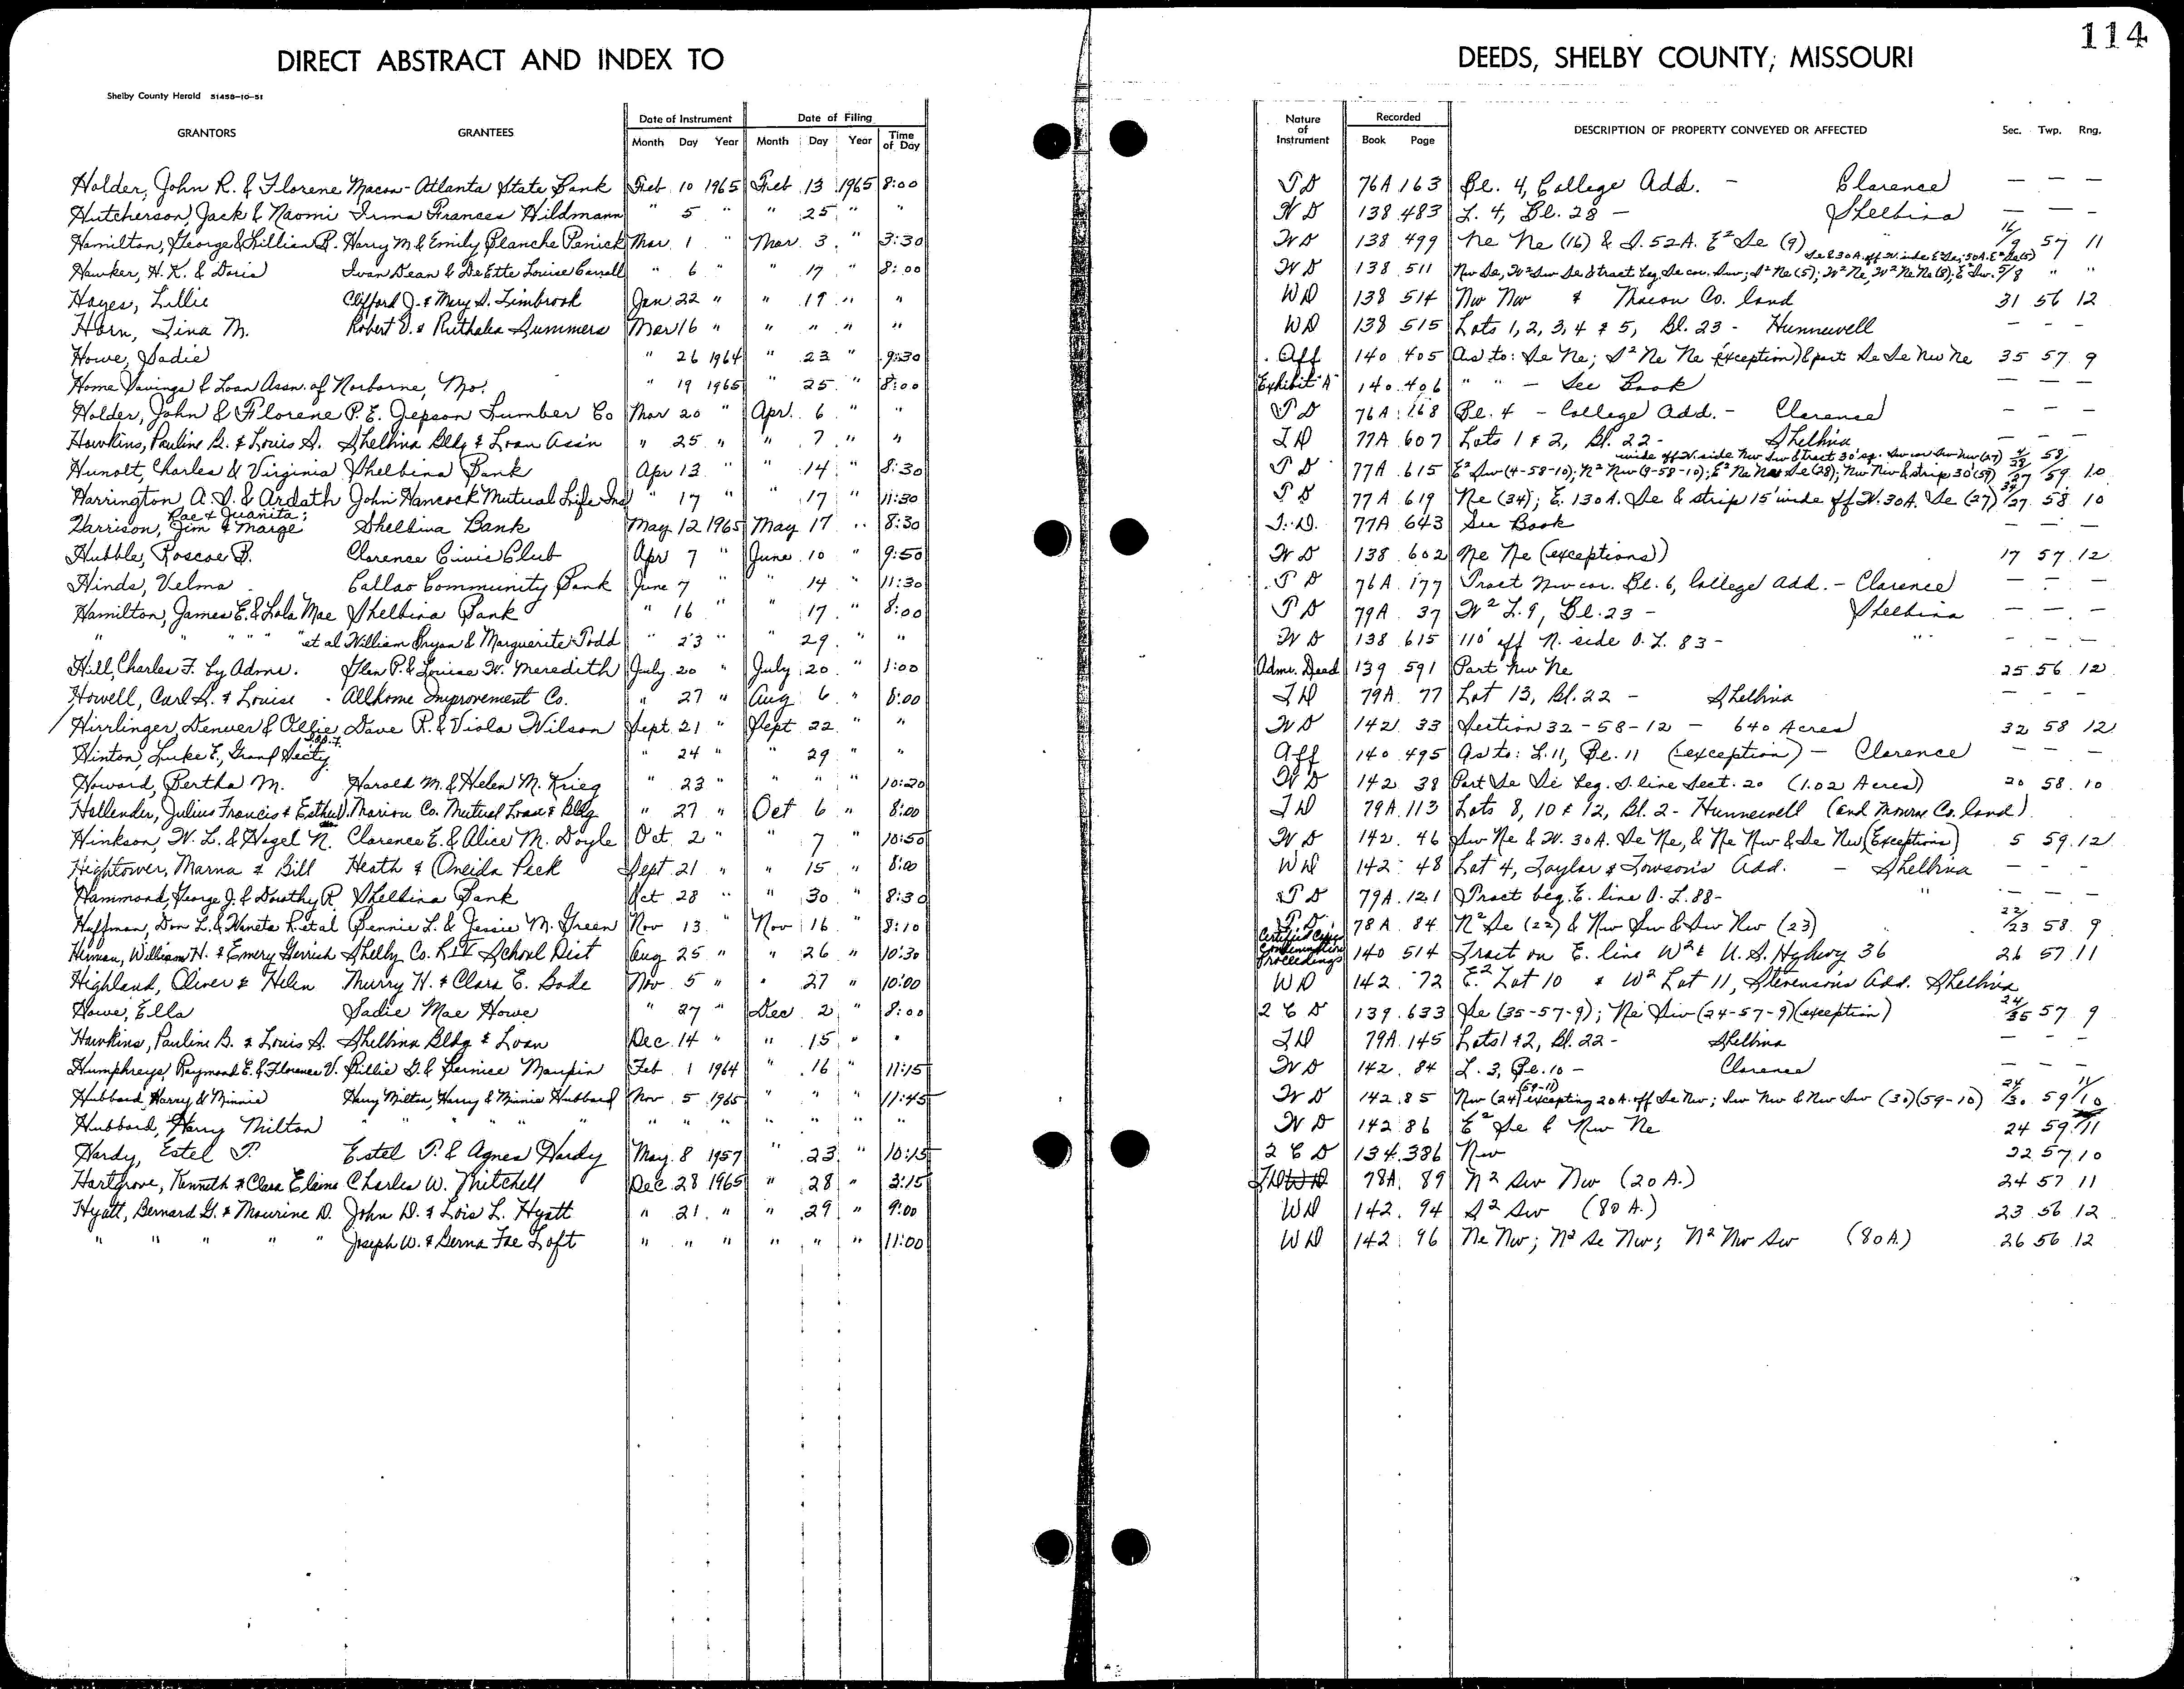 114
DIRECT ABSTRACT AND INDEX TO DEEDS, SHELBY COUNTY, MISSOURI
Shelby County Herald 51458-10-51
GRANTORS GRANTEES Date of Instrument Month Day Year Date of Filing Month Day Year Time of Day Nature of Instrument Recorded Book Page DESCRIPTION OF PROPERTY CONVEYED OR AFFECTED Sec. Twp. Rng.
Holder, John R. & Florene Macon-Atlanta State Bank Feb 10 1965 Feb 13 1965 8:00 TD 76A 163 Bl. 4, College Add. - Clarence — — —
Hutcherson, Jack & Naomi Irma Frances Hildmann " 5 " " 25 " " WD 138 483 L. 4, Bl. 28 - Shelbina — — -
Hamilton, George & Lillian B. Harry M & Emily Blanche Penick Mar. 1 " Mar. 3 " 3:30 WD 138 499 Ne Ne (16) & S. 52A. E² Se (9) 16/9 57 11
Hawker, H. K. & Doris Ivan Dean & DeEtte Louise " 6 " " 17 " 8:00 WD 138 511 Nw Se, W² Sw Se & tract beg. Se cor. Sw; S² Ne (5); W² Ne, W² Ne Ne (8); E² Sw. 5/8 " "
Hayes, Lillie Clifford J. & Mary S. Timbrook Jan 22 " " 19 " " WD 138 514 Nw Nw & Macon Co. land 31 56 12
Horn, Tina M. Robert V. & Ruthalea Summers Mar 16 " " " " " WD 138 515 Lots 1, 2, 3, 4 & 5, Bl. 23 - Hunnewell - - -
Howe, Sadie " 26 1964 " 23 " 9:30 Aff 140 405 As to: Se Ne; S² Ne Ne (exception) & part Se Se Nw Ne 35 57 9
Home Savings & Loan Assn. of Norborne, Mo. " 19 1965 " 25 " 8:00 Exhibit "A" 140 406 " " - See Book — — —
Holder, John & Florene P. E. Jepson Lumber Co Mar 20 " Apr. 6 " " TD 76A 168 Bl. 4 - College Add. - Clarence - - -
Hawkins, Pauline B. & Louis A. Shelbina Bldg & Loan Ass'n " 25 " " 7 " " TD 77A 607 Lots 1 & 2, Bl. 22 - Shelbina — — —
Hunolt, Charles & Virginia Shelbina Bank Apr 13 " " 14 " 8:30 TD 77A 615 E² Sw (4-58-10); N² Nw (9-58-10); 59 10
Harrington A. D. & Ardath John Hancock Mutual Life Ins " 17 " " 17 " 11:30 TD 77A 619 Ne (34); E. 130A. Se & strip 15' wide off W. 30A. Se (27) 34/27 58 10
Rae & Juanita;
Harrison, Jim & Marge Shelbina Bank May 12 1965 May 17 " 8:30 T.D. 77A 643 See Book — — —
Hubble, Roscoe B. Clarence Civic Club Apr 7 " June 10 " 9:50 WD 138 602 Ne Ne (exceptions) 17 57 12
Hinds, Velma Callao Community Bank June 7 " " 14 " 11:30 TD 76A 177 Tract Nw cor. Bl. 6, College Add. - Clarence - - -
Hamilton, James E. & Lola Mae Shelbina Bank " 16 " " 17 " 8:00 TD 79A 37 W² L. 9, Bl. 23 - Shelbina - - -
" " " " " et al William Bryan & Marguerite Todd " 23 " " 29 " " WD 138 615 110' off N. side O. L. 83 - " - - -
Hill, Charles F. by Admr. Glen P. & Louise W. Meredith July 20 " July 20 " 1:00 Admr. Deed 139 591 Part Nw Ne 25 56 12
Howell, Carl L. & Louise - Allhome Improvement Co. " 27 " Aug 6 " 8:00 TD 79A 77 Lot 13, Bl. 22 - Shelbina - - -
Hirrlinger, Denver & Ollie Dave R. & Viola Wilson Sept. 21 " Sept 22 " " WD 142 33 Section 32-58-12 - 640 Acres 32 58 12
Hinton, Luke E., Grand Sect'y I.O.O.F. " 24 " " 29 " " Aff 140 495 As to: L. 11, Bl. 11 (exception) - Clarence — — —
Howard, Bertha M. Harold M. & Helen M. Krieg " 23 " " " " 10:20 WD 142 38 Part Se Se beg. S. line Sect. 20 (1.02 Acres) 20 58 10
Hollender, Julius Francis & Esther Marion Co. Mutual Loan & Bldg " 27 " Oct 6 " 8:00 TD 79A 113 Lots 8, 10 & 12, Bl. 2 - Hunnewell (and Monroe Co. land)
Hinkson, W. L. & Hazel N. Clarence E. & Alice M. Doyle Oct. 2 " " 7 " 10:50 WD 142 46 Sw Ne & W. 30A. Se Ne, & Ne Nw & Se Nw (Exceptions) 5 59 12
Hightower, Marna & Bill Heath & Oneida Peek Sept 21 " " 15 " 8:00 WD 142 48 Lot 4, Taylor & Towson's Add. - Shelbina - - -
Hammond, George J. & Dorothy R Shelbina Bank Oct 28 " " 30 " 8:30 TD 79A 121 Tract beg. E. line O. L. 88 - " - - -
Huffman, Don L. & Waneta R. et al Bennie L. & Jessie M. Green Nov 13 " Nov 16 " 8:10 TD 78A 84 N² Se (22) & Nw Sw & Sw Nw (23) 22/23 58 9
Herman, William H. & Emery Gerrish Shelby Co. R IV School Dist Aug 25 " " 26 " 10:30 Certified Copy Condemnation Proceedings 140 514 Tract on E. line W² & U. S. Hghwy 36 26 57 11
Highland, Oliver & Helen Murry H. & Clara E. Bode Nov. 5 " " 27 " 10:00 WD 142 72 E² Lot 10 & W² Lot 11, Stevenson's Add. Shelbina
Howe, Ella Sadie Mae Howe " 27 " Dec 2 " 8:00 2 C D 139 633 Se (35-57-9); Ne Sw (24-57-9) (exception) 24/35 57 9
Hawkins, Pauline B. & Louis A. Shelbina Bldg & Loan Dec. 14 " " 15 " " TD 79A 145 Lots 1 & 2, Bl. 22 - Shelbina - - -
Humphreys, Raymond E. & Florence V. Billie G. & Bernice Maupin Feb 1 1964 " 16 " 11:15 WD 142 84 L. 3, Bl. 10 - Clarence — — —
Hubbard, Harry & Minnie Harry Milton, Harry & Minnie Hubbard Nov. 5 1965 " " " 11:45 WD 142 85 Nw (24) (59-11) excepting 20A. off Se Nw; Sw Nw & Nw Sw (30) (59-10) 24/30 59 11/10
Hubbard, Harry Milton " " " " " " " " " " WD 142 86 E² Se & Nw Ne 24 59 11
Hardy, Estel P. Estel P. & Agnes Hardy May. 8 1957 " 23 " 10:15 2 C D 134 386 Nw 22 57 10
Hartgrove, Kenneth & Clara Elaine Charles W. Mitchell Dec 28 1965 " 28 " 3:15 TD WD 78A 89 N² Sw Nw (20 A.) 24 57 11
Hyatt, Bernard G. & Mourine D. John D. & Lois L. Hyatt " 21 " " 29 " 9:00 WD 142 94 S² Sw (80 A.) 23 56 12
" " " " " Joseph W. & Berna Fae Loft " " " " " " 11:00 WD 142 96 Ne Nw; N² Se Nw; N² Nw Sw (80 A.) 26 56 12